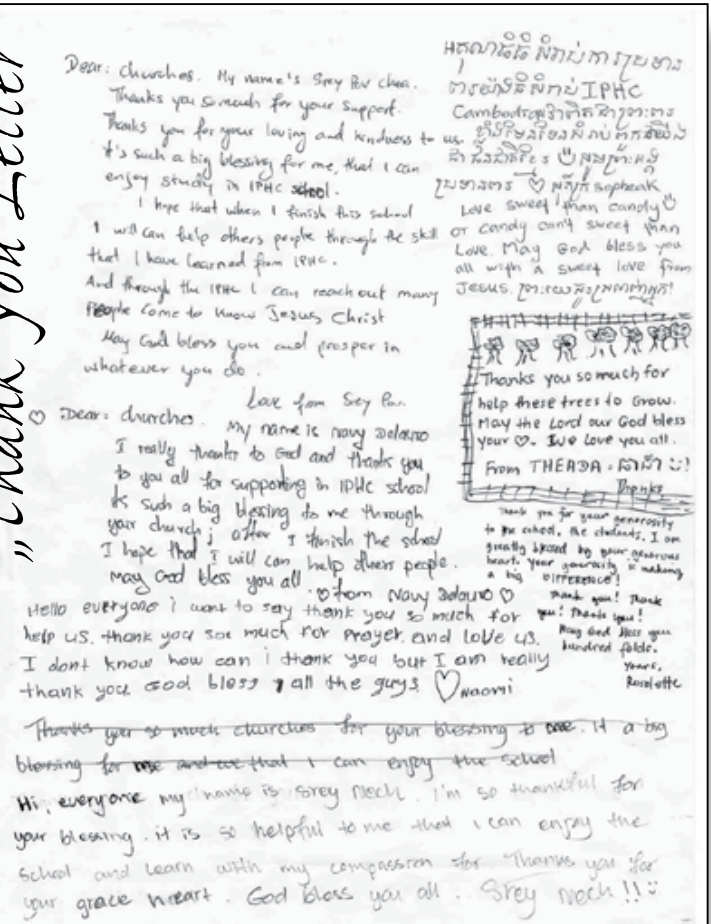 "Thank you Letter
Dear: churches. My name's Srey Pov chea.
Thanks you so much for your support.
Thanks you for your loving and kindness to us.
it's such a big blessing for me, that I can
enjoy study in IPHC school.
I hope that when I finish this school
I will can help others people through the skill
that I have learned from IPHC.
And through the IPHC I can reach out many
People come to know Jesus Christ
May God bless you and prosper in
whatever you do.
Love from Srey Pov.
♡ Dear: churches.
My name is Navy
I really thanks to God and thanks you
to you all for supporting in IPHC school
is such a big blessing to me through
your church; after I finish the school
I hope that I will can help others people.
May God bless you all
♡ from Navy ♡
Hello everyone i want to say thank you so much for
help us. thank you soe much for prayer. and love us.
I dont know how can i thank you but I am really
thank you God bless all the guys ♡ Naomi
Thanks you so much churches for your blessing to me. it a big
blessing for me and we that I can enjoy the school
Hi, everyone my name is Srey Nech. I'm so thankful for
your blessing. it is so helpful to me that I can enjoy the
school and learn with my compassion for Thanks you for
your grace heart. God bless you all.. Srey Nech!!
IPHC
Cambodia
♡ sopheak
Love sweet than candy
or candy can't sweet than
Love. May God bless you
all with a sweet love from
Jesus.
Thanks you so much for
help these trees to Grow.
May the Lord our God bless
your ♡. I we Love you all.
From THEADA - ធីដា !
Thanks
Thank you for your generosity
to the school, the students. I am
greatly blessed by your generous
heart. Your generosity is making
a big DIFFERENCE!
Thank you! Thank
you! Thank you!
May God bless you
hundred folds.
Yours,
Roselette